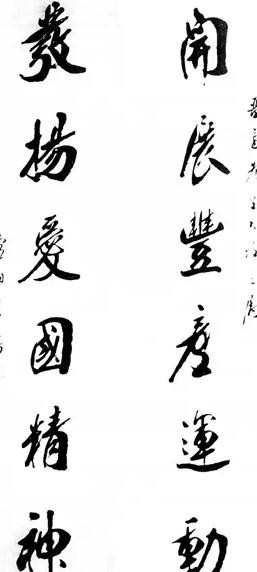 開展豐產運動
發揚愛國精神